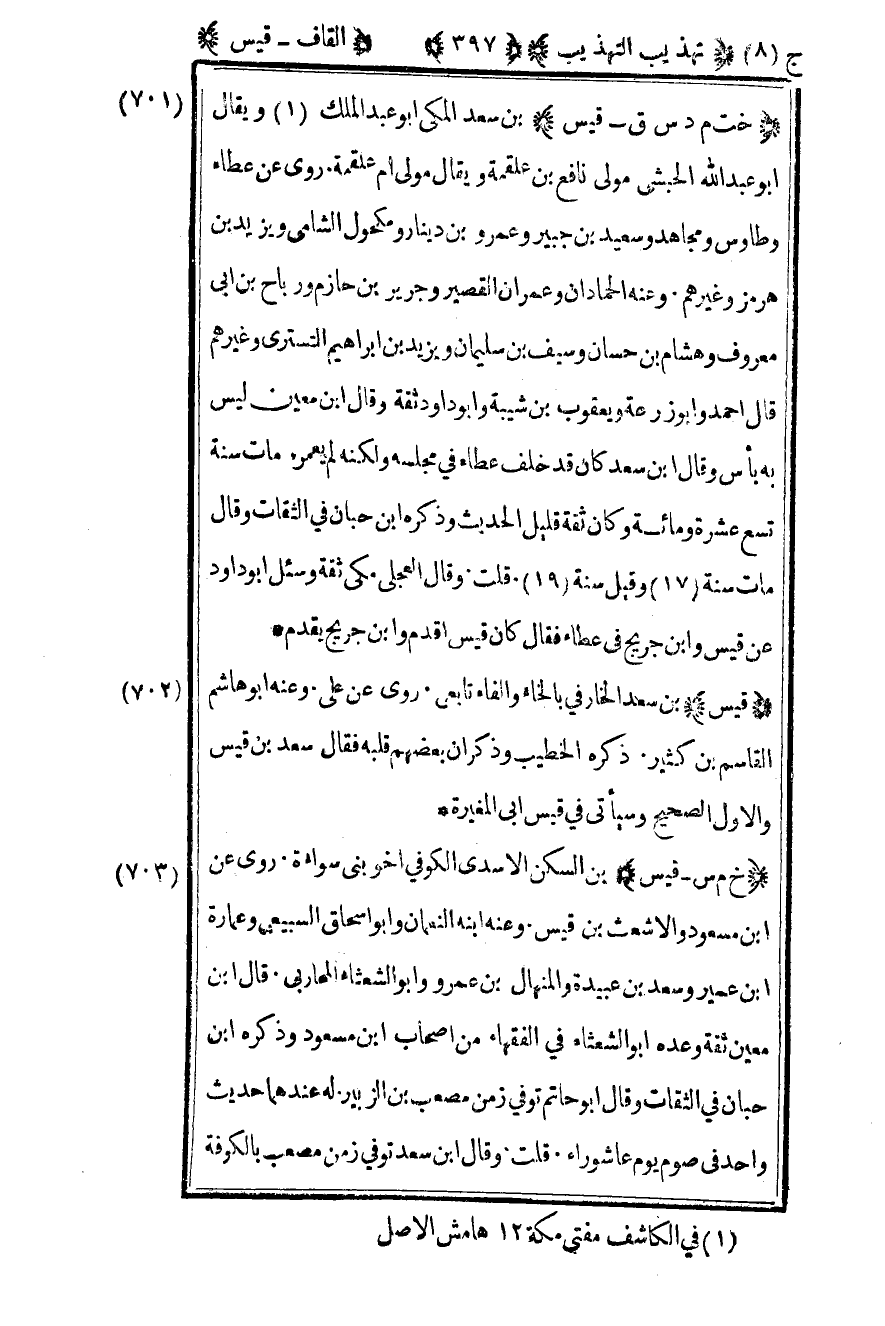 ج (٨) ﴿ تهذيب التهذيب ﴾ ﴿ ٣٩٧ ﴾ ﴿ القاف - قيس ﴾
﴿ خت م د س ق - قيس ﴾ بن سعد المكى ابو عبد الملك (١) ويقال (٧٠١)
ابو عبد الله الحبشى مولى نافع بن علقمة ويقال مولى ام علقمة . روى عن عطاء
وطاوس ومجاهد وسعيد بن جبير وعمرو بن دينار ومكحول الشامى ويزيد بن
هرمز وغيرهم . وعنه الحمادان وعمران القصير وجرير بن حازم ورباح بن ابى
معروف وهشام بن حسان وسيف بن سليمان ويزيد بن ابراهيم التسترى وغيرهم
قال احمد وابو زرعة ويعقوب بن شيبة وابو داود ثقة وقال ابن معين ليس
به بأس وقال ابن سعد كان قد خلف عطاء في مجلسه ولكنه لم يعمر . مات سنة
تسع عشرة ومائة وكان ثقة قليل الحديث وذكره ابن حبان في الثقات وقال
مات سنة (١٧) وقيل سنة (١٩) . قلت . وقال العجلى مكى ثقة وسئل ابو داود
عن قيس وابن جريج فى عطاء فقال كان قيس اقدم وابن جريج يقدم *
﴿ قيس ﴾ بن سعد الخارفي بالخاء والفاء تابعى . روى عن على . وعنه ابو هاشم (٧٠٢)
القاسم بن كثير . ذكره الخطيب وذكر ان بعضهم قلبه فقال سعد بن قيس
والاول الصحيح وسيأتى في قيس ابى المغيرة *
﴿ خ م س - قيس ﴾ بن السكن الاسدى الكوفي اخو بنى سواءة . روى عن (٧٠٣)
ابن مسعود والاشعث بن قيس . وعنه ابنه النعمان وابو اسحاق السبيعى وعمارة
ابن عمير وسعد بن عبيدة والمنهال بن عمرو وابو الشعثاء المحاربى . قال ابن
معين ثقة وعده ابو الشعثاء في الفقهاء من اصحاب ابن مسعود وذكره ابن
حبان في الثقات وقال ابو حاتم توفي زمن مصعب بن الزبير . له عندهما حديث
واحد فى صوم يوم عاشوراء . قلت . وقال ابن سعد توفي زمن مصعب بالكوفة
(١) في الكاشف مفتى مكة ١٢ هامش الاصل